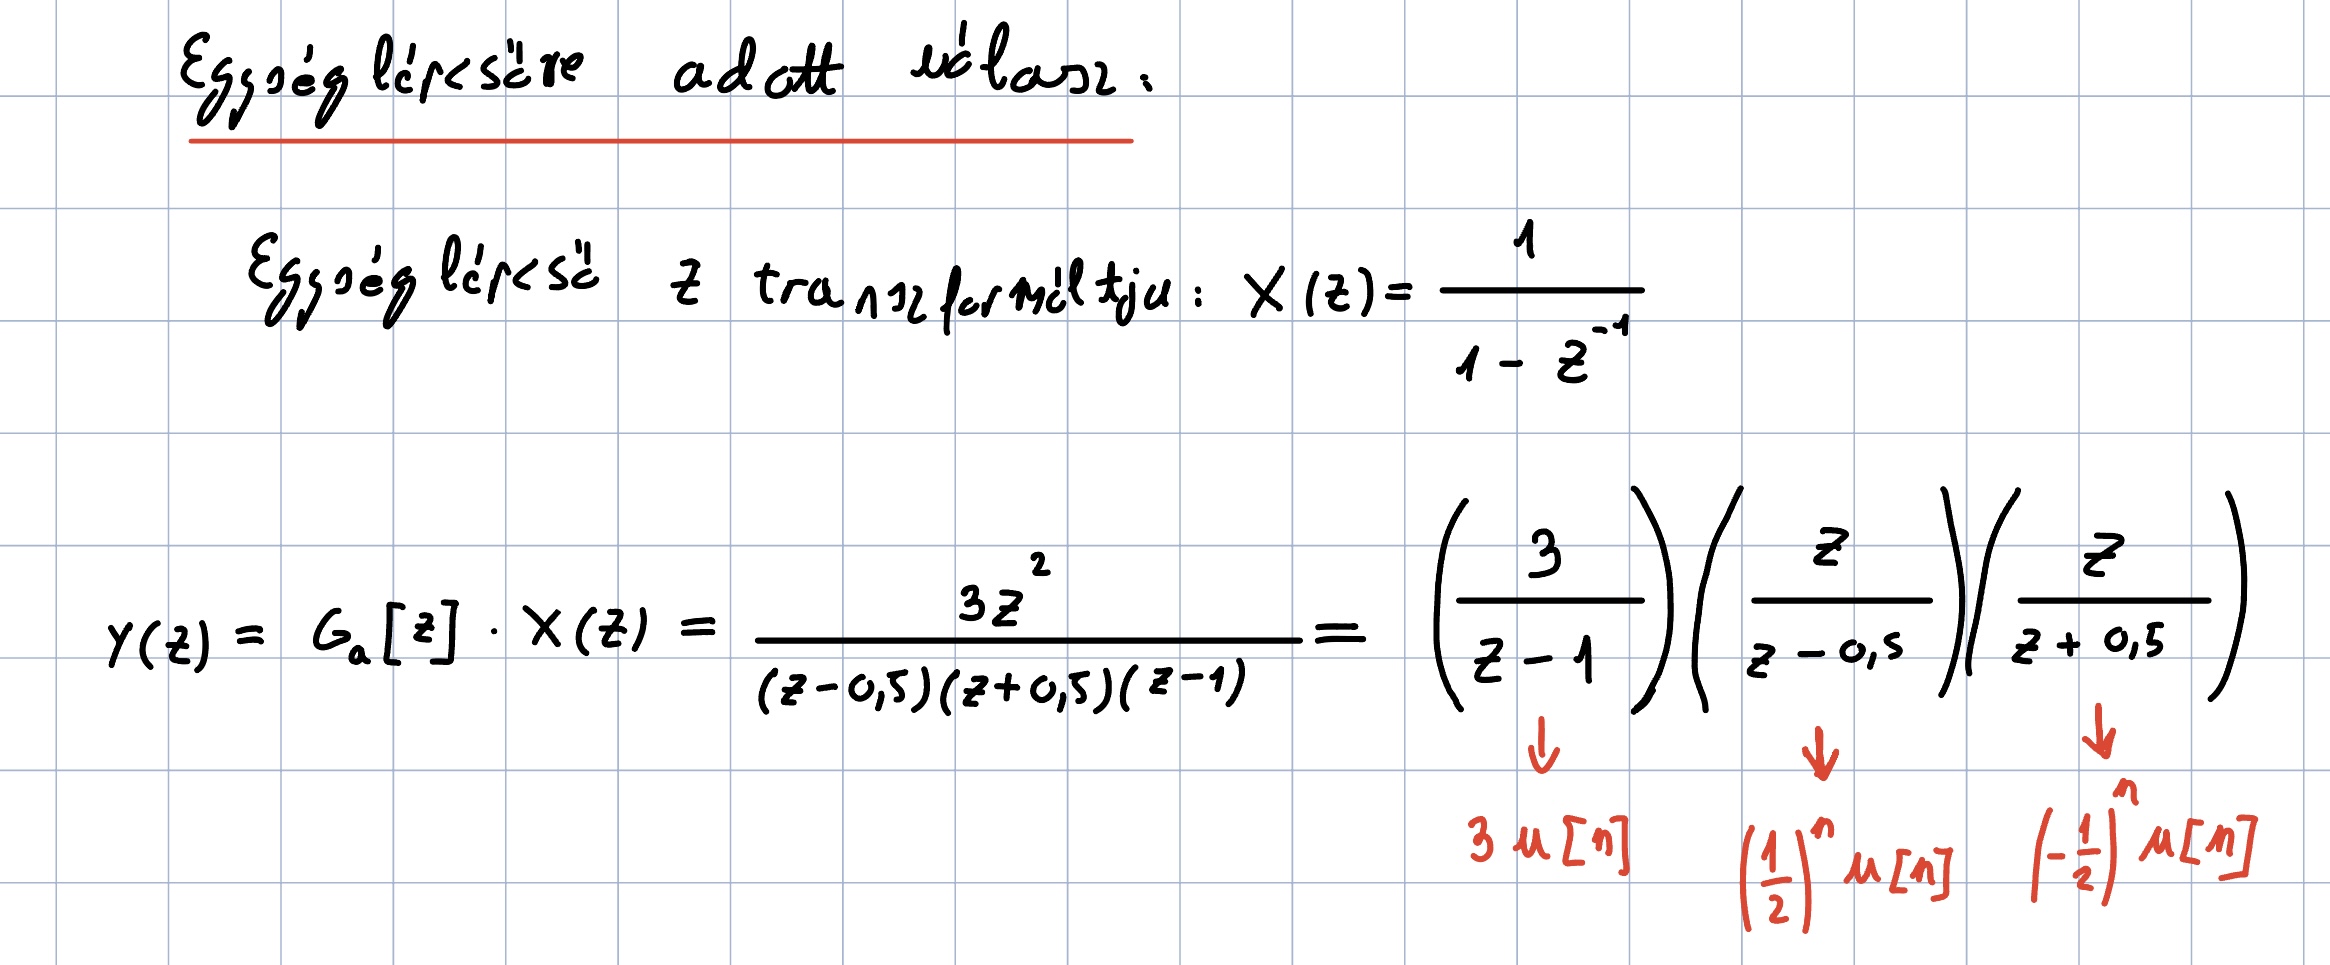 Egységlépcsőre adott válasz:
Egységlépcső z transzformáltja: X(z) = 1 / (1 - z^-1)
Y(z) = G_a[z] · X(z) = 3z^2 / ((z-0,5)(z+0,5)(z-1)) = (3 / (z-1)) (z / (z-0,5)) (z / (z+0,5))
↓ ↓ ↓
3 u[n] (1/2)^n u[n] (-1/2)^n u[n]